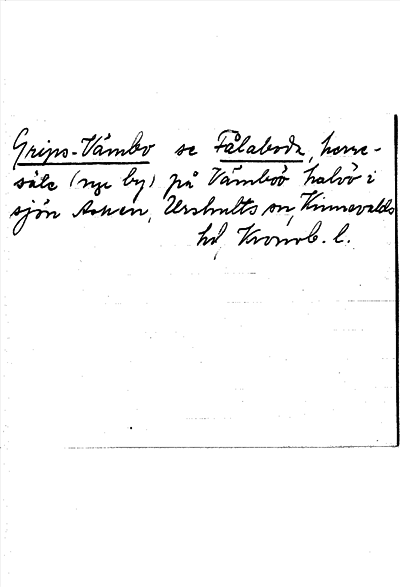 Grips-Vämbo se Fålaboda, herre-
säte (nye by) på Vämböö halvö i
sjön Asnen, Urshults sn, Kinnevalds
hd, Kronob. l.